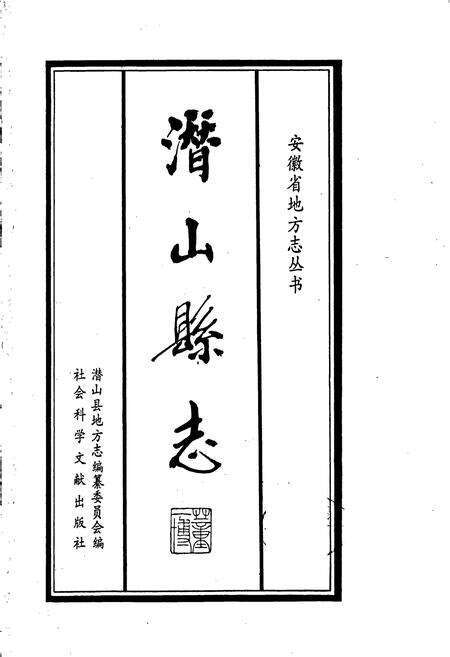 安徽省地方志丛书
潛山縣志
潜山县地方志编纂委员会编
社会科学文献出版社